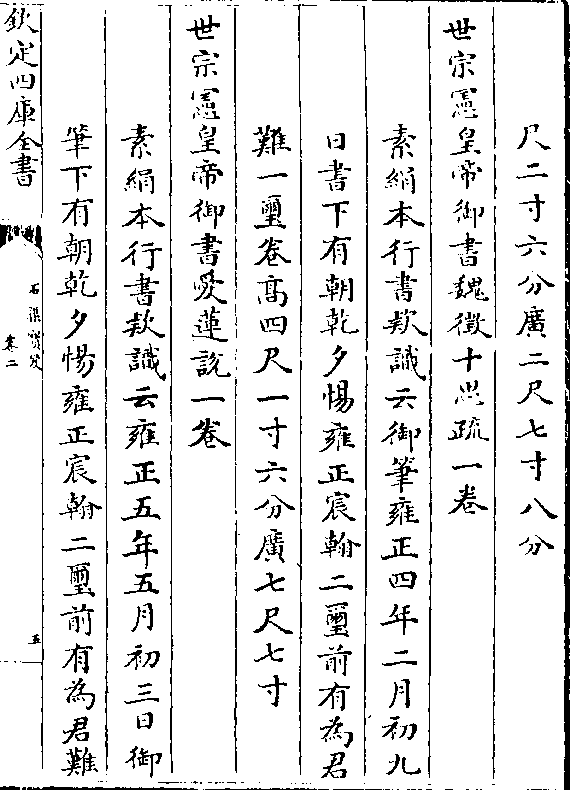 尺二寸六分廣二尺七寸八分
世宗憲皇帝御書魏徵十思疏一卷
素絹本行書欵識云御筆雍正四年二月初九
日書下有朝乾夕惕雍正宸翰二璽前有為君
難一璽卷高四尺一寸六分廣七尺七寸
世宗憲皇帝御書愛蓮說一卷
素絹本行書欵識云雍正五年五月初三日御
筆下有朝乾夕惕雍正宸翰二璽前有為君難
欽定四庫全書
石渠寶笈
卷二
五